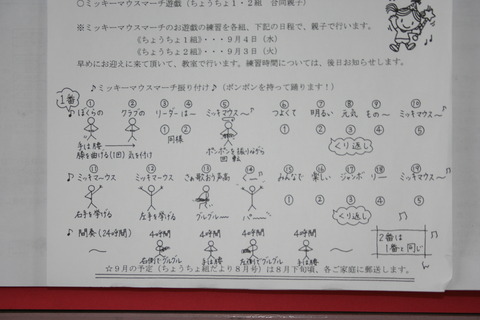 ○ミッキーマウスマーチ遊戯(ちょうちょ1・2組 合同親子)
※ミッキーマウスマーチのお遊戯の練習を各組、下記の日程で、親子で行います。
《ちょうちょ1組》・・・9月4日(水)
《ちょうちょ2組》・・・9月3日(火)
早めにお迎えに来て頂いて、教室で行います。練習時間については、後日お知らせします。
♪ミッキーマウスマーチ振り付け♪(ポンポンを持って踊ります!)
1番
① ② ③ ④ ⑤ ⑥ ⑦ ⑧ ⑨ ⑩
♪ぼくらの クラブの リーダーは〜 ミッキマウス〜♪ つよくて 明るい 元気 もの〜 ミッキマウス〜♪
同様 ① ② ③ ④ ⑤
くり返し
手は腰 腰を曲げる(1回) 気を付け ポンポンを振りながら回転
⑪ ⑫ ⑬ ⑭ ⑮ ⑯ ⑰ ⑱ ⑲
♪ミッキマウス ミッキマウス さぁ歌おう声高く〜♪ みんなで 楽しい ジャンボリー ミッキマウス〜♪
① ② ③ ④ ⑤
くり返し
右手を挙げる 左手を挙げる グルグル パー
♪間奏(24呼間) 4呼間 4呼間 4呼間 4呼間
2番は1番と同じ
右側でグルグル 手は腰 左側でグルグル 手は腰
☆9月の予定(ちょうちょ組だより8月号)は8月下旬頃、各ご家庭に郵送します。